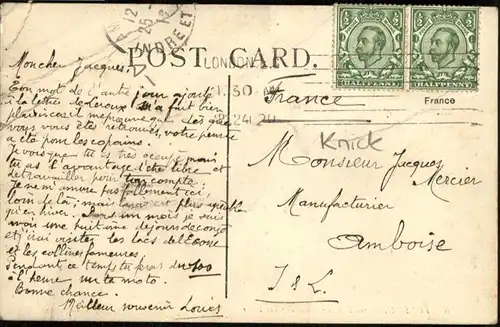 12
25
INDRE ET
POST CARD.
LONDON
1.30
24
HALFPENNY
HALFPENNY
France
France
Knick
Monsieur Jacques
Mercier
Manufacturier
Amboise
I & L.
Mon cher Jacques,
Ton mot de l'autre jour ajouté
à la lettre de Leroux m'a fait bien
plaisir car il me prouve que
vous vous êtes retrouvés, votre pensée
a été pour les copains.
Je vois que tu es très occupé mais
tu as l'avantage d'être libre et
de travailler pour ton compte.
Je ne m'ennuie pas follement ici,
loin de là; mais plus agréable
qu'en hiver. Dans un mois je vais
avoir une huitaine de jours de congé
et j'irai visiter les lacs de l'Ecosse
et les collines fameuses.
Pendant ce temps tu feras du 100
à l'heure sur ta moto.
Bonne chance.
Meilleur souvenir Louis